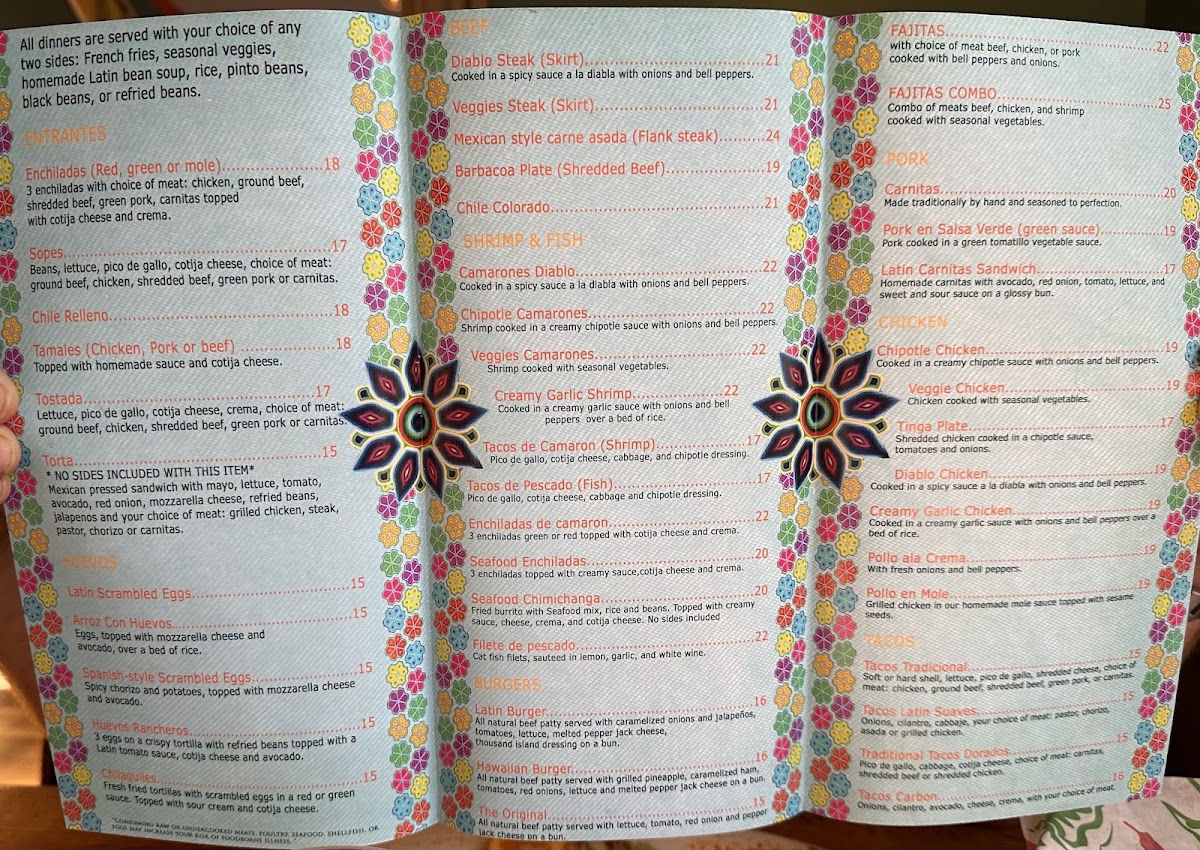 All dinners are served with your choice of any
two sides: French fries, seasonal veggies,
homemade Latin bean soup, rice, pinto beans,
black beans, or refried beans.
ENTRANTES
Enchiladas (Red, green or mole)......................18
3 enchiladas with choice of meat: chicken, ground beef,
shredded beef, green pork, carnitas topped
with cotija cheese and crema.
Sopes......................17
Beans, lettuce, pico de gallo, cotija cheese, choice of meat:
ground beef, chicken, shredded beef, green pork or carnitas.
Chile Relleno......................18
Tamales (Chicken, Pork or beef)......................18
Topped with homemade sauce and cotija cheese.
Tostada......................17
Lettuce, pico de gallo, cotija cheese, crema, choice of meat:
ground beef, chicken, shredded beef, green pork or carnitas.
Torta......................15
* NO SIDES INCLUDED WITH THIS ITEM*
Mexican pressed sandwich with mayo, lettuce, tomato,
avocado, red onion, mozzarella cheese, refried beans,
jalapenos and your choice of meat: grilled chicken, steak,
pastor, chorizo or carnitas.
HUEVOS
Latin Scrambled Eggs......................15
Arroz Con Huevos......................15
Eggs, topped with mozzarella cheese and
avocado, over a bed of rice.
Spanish-style Scrambled Eggs......................15
Spicy chorizo and potatoes, topped with mozzarella cheese
and avocado.
Huevos Rancheros......................15
3 eggs on a crispy tortilla with refried beans topped with a
Latin tomato sauce, cotija cheese and avocado.
Chilaquiles......................15
Fresh fried tortillas with scrambled eggs in a red or green
sauce. Topped with sour cream and cotija cheese.
*CONSUMING RAW OR UNDERCOOKED MEATS, POULTRY, SEAFOOD, SHELLFISH, OR
EGGS MAY INCREASE YOUR RISK OF FOODBORNE ILLNESS.
BEEF
Diablo Steak (Skirt)......................21
Cooked in a spicy sauce a la diabla with onions and bell peppers.
Veggies Steak (Skirt)......................21
Mexican style carne asada (Flank steak)..........24
Barbacoa Plate (Shredded Beef)......................19
Chile Colorado......................21
SHRIMP & FISH
Camarones Diablo......................22
Cooked in a spicy sauce a la diabla with onions and bell peppers.
Chipotle Camarones......................22
Shrimp cooked in a creamy chipotle sauce with onions and bell peppers.
Veggies Camarones......................22
Shrimp cooked with seasonal vegetables.
Creamy Garlic Shrimp......................22
Cooked in a creamy garlic sauce with onions and bell
peppers over a bed of rice.
Tacos de Camaron (Shrimp)......................17
Pico de gallo, cotija cheese, cabbage, and chipotle dressing.
Tacos de Pescado (Fish)......................17
Pico de gallo, cotija cheese, cabbage and chipotle dressing.
Enchiladas de camaron......................22
3 enchiladas green or red topped with cotija cheese and crema.
Seafood Enchiladas......................20
3 enchiladas topped with creamy sauce,cotija cheese and crema.
Seafood Chimichanga......................20
Fried burrito with Seafood mix, rice and beans. Topped with creamy
sauce, cheese, crema, and cotija cheese. No sides included
Filete de pescado......................22
Cat fish filets, sauteed in lemon, garlic, and white wine.
BURGERS
Latin Burger......................16
All natural beef patty served with caramelized onions and jalapeños,
tomatoes, lettuce, melted pepper jack cheese,
thousand island dressing on a bun.
Hawaiian Burger......................16
All natural beef patty served with grilled pineapple, caramelized ham,
tomatoes, red onions, lettuce and melted pepper jack cheese on a bun.
The Original......................15
All natural beef patty served with lettuce, tomato, red onion and pepper
jack cheese on a bun.
FAJITAS......................22
with choice of meat beef, chicken, or pork
cooked with bell peppers and onions.
FAJITAS COMBO......................25
Combo of meats beef, chicken, and shrimp
cooked with seasonal vegetables.
PORK
Carnitas......................20
Made traditionally by hand and seasoned to perfection.
Pork en Salsa Verde (green sauce)..........19
Pork cooked in a green tomatillo vegetable sauce.
Latin Carnitas Sandwich......................17
Homemade carnitas with avocado, red onion, tomato, lettuce, and
sweet and sour sauce on a glossy bun.
CHICKEN
Chipotle Chicken......................19
Cooked in a creamy chipotle sauce with onions and bell peppers.
Veggie Chicken......................19
Chicken cooked with seasonal vegetables.
Tinga Plate......................17
Shredded chicken cooked in a chipotle sauce,
tomatoes and onions.
Diablo Chicken......................19
Cooked in a spicy sauce a la diabla with onions and bell peppers.
Creamy Garlic Chicken......................19
Cooked in a creamy garlic sauce with onions and bell peppers over a
bed of rice.
Pollo ala Crema......................19
With fresh onions and bell peppers.
Pollo en Mole......................19
Grilled chicken in our homemade mole sauce topped with sesame
seeds.
TACOS
Tacos Tradicional......................15
Soft or hard shell, lettuce, pico de gallo, shredded cheese, choice of
meat: chicken, ground beef, shredded beef, green pork, or carnitas.
Tacos Latin Suaves......................15
Onions, cilantro, cabbaje, your choice of meat: pastor, chorizo,
asada or grilled chicken.
Traditional Tacos Dorados......................15
Pico de gallo, cabbage, cotija cheese, choice of meat: carnitas,
shredded beef or shredded chicken.
Tacos Carbon......................16
Onions, cilantro, avocado, cheese, crema, with your choice of meat.